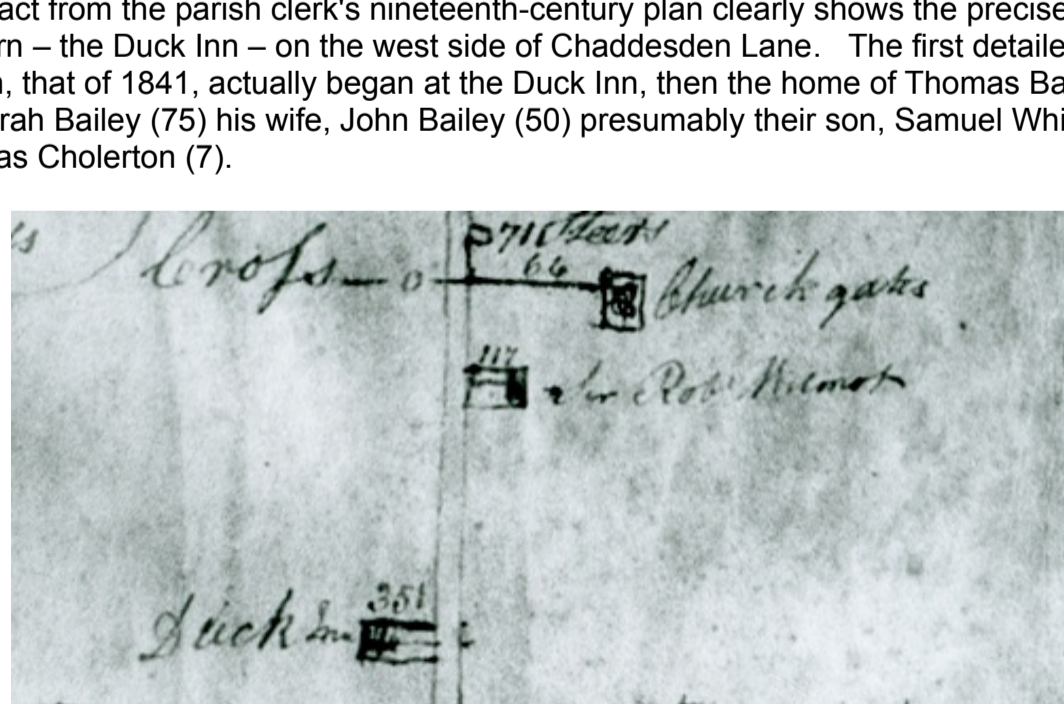 act from the parish clerk's nineteenth-century plan clearly shows the precise
rn – the Duck Inn – on the west side of Chaddesden Lane. The first detaile
, that of 1841, actually began at the Duck Inn, then the home of Thomas Ba
rah Bailey (75) his wife, John Bailey (50) presumably their son, Samuel Whi
as Cholerton (7).
71
Cross 66 Church gates
117
Sir Robt Wilmot
351
Duck Inn